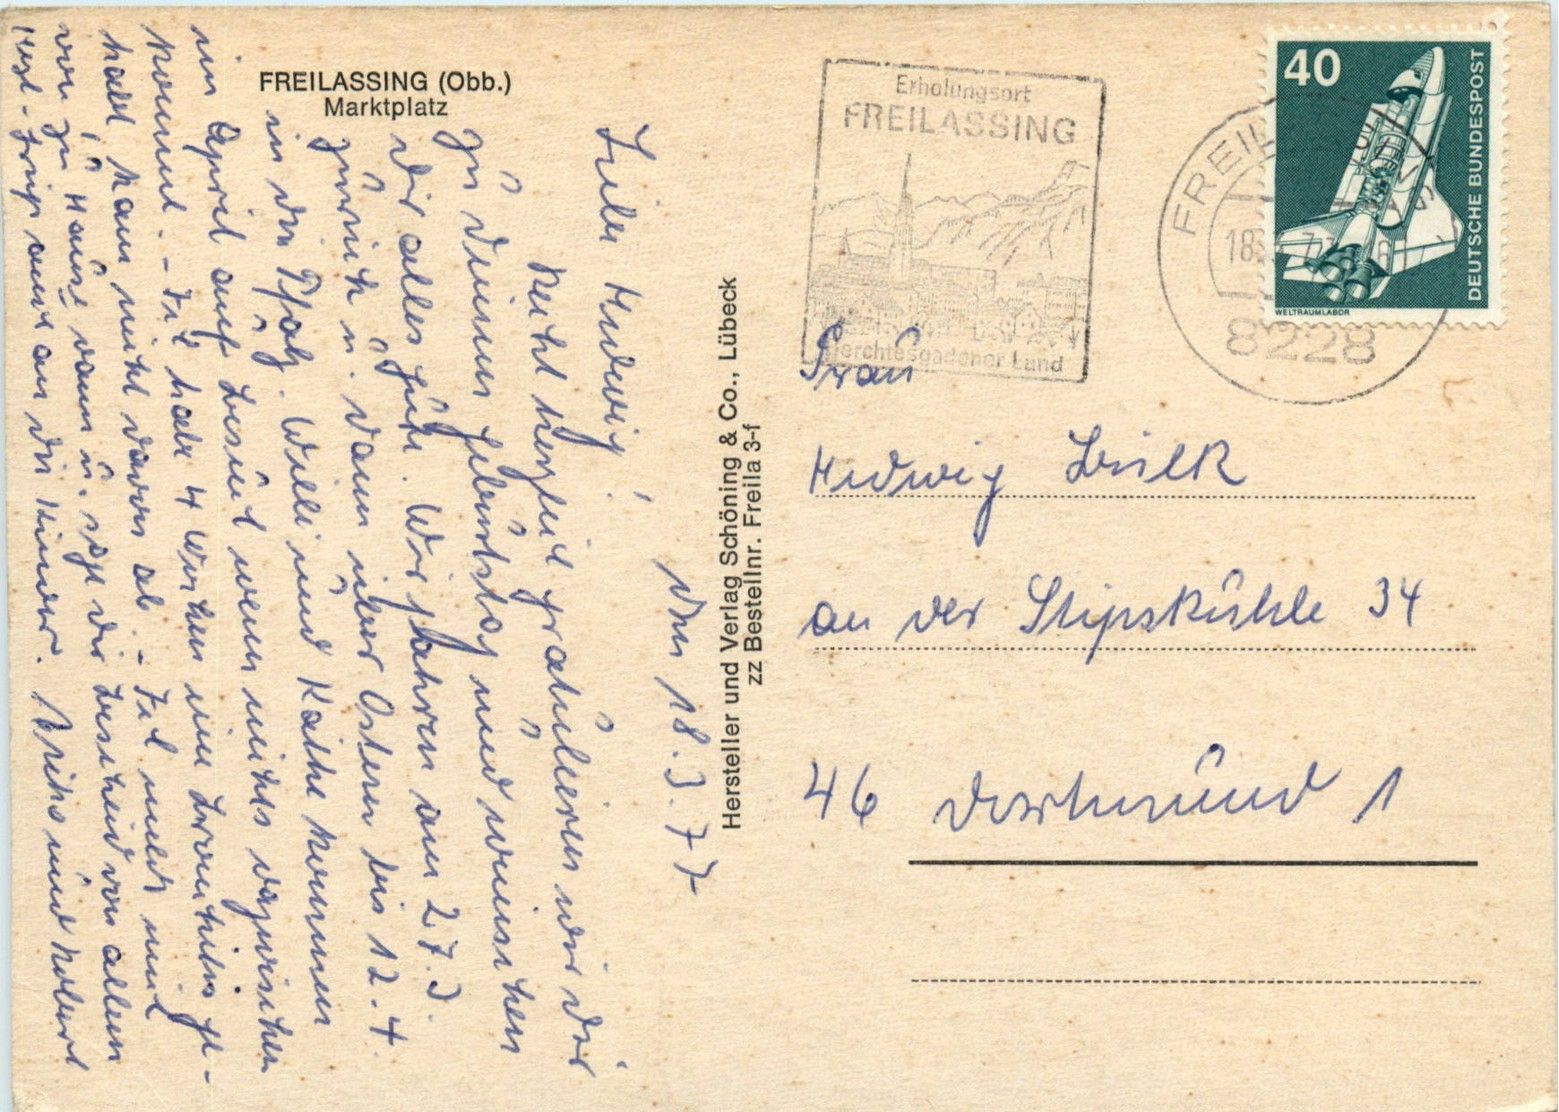 FREILASSING (Obb.)
Marktplatz
den 18.3.77
Liebe Hedwig!
Recht herzlich gratulieren wir Dir
zu Deinem Geburtstag und wünschen
Dir alles Gute. Wir fahren am 27.3.
zurück u. dann über Ostern bis 12.4.
in die Pfalz. Willi und Käthe kommen
im April auf Besuch wenn nichts dazwischen
kommt. - Ich habe 4 Wochen eine
hält kam nicht davon ab - Ich melde mich
von zu Hause dann u. sage Dir Bescheid von allem
Herzl. Grüße auch an die Kinder. und Robert
Hersteller und Verlag Schöning & Co., Lübeck
zz Bestellnr. Freila 3-f
Erholungsort
FREILASSING
Berchtesgadener Land
FREILASSING
18.3.77
8228
40
DEUTSCHE BUNDESPOST
WELTRAUMLABOR
Frau
Hedwig
an der Stipskuhle 34
46 Dortmund 1